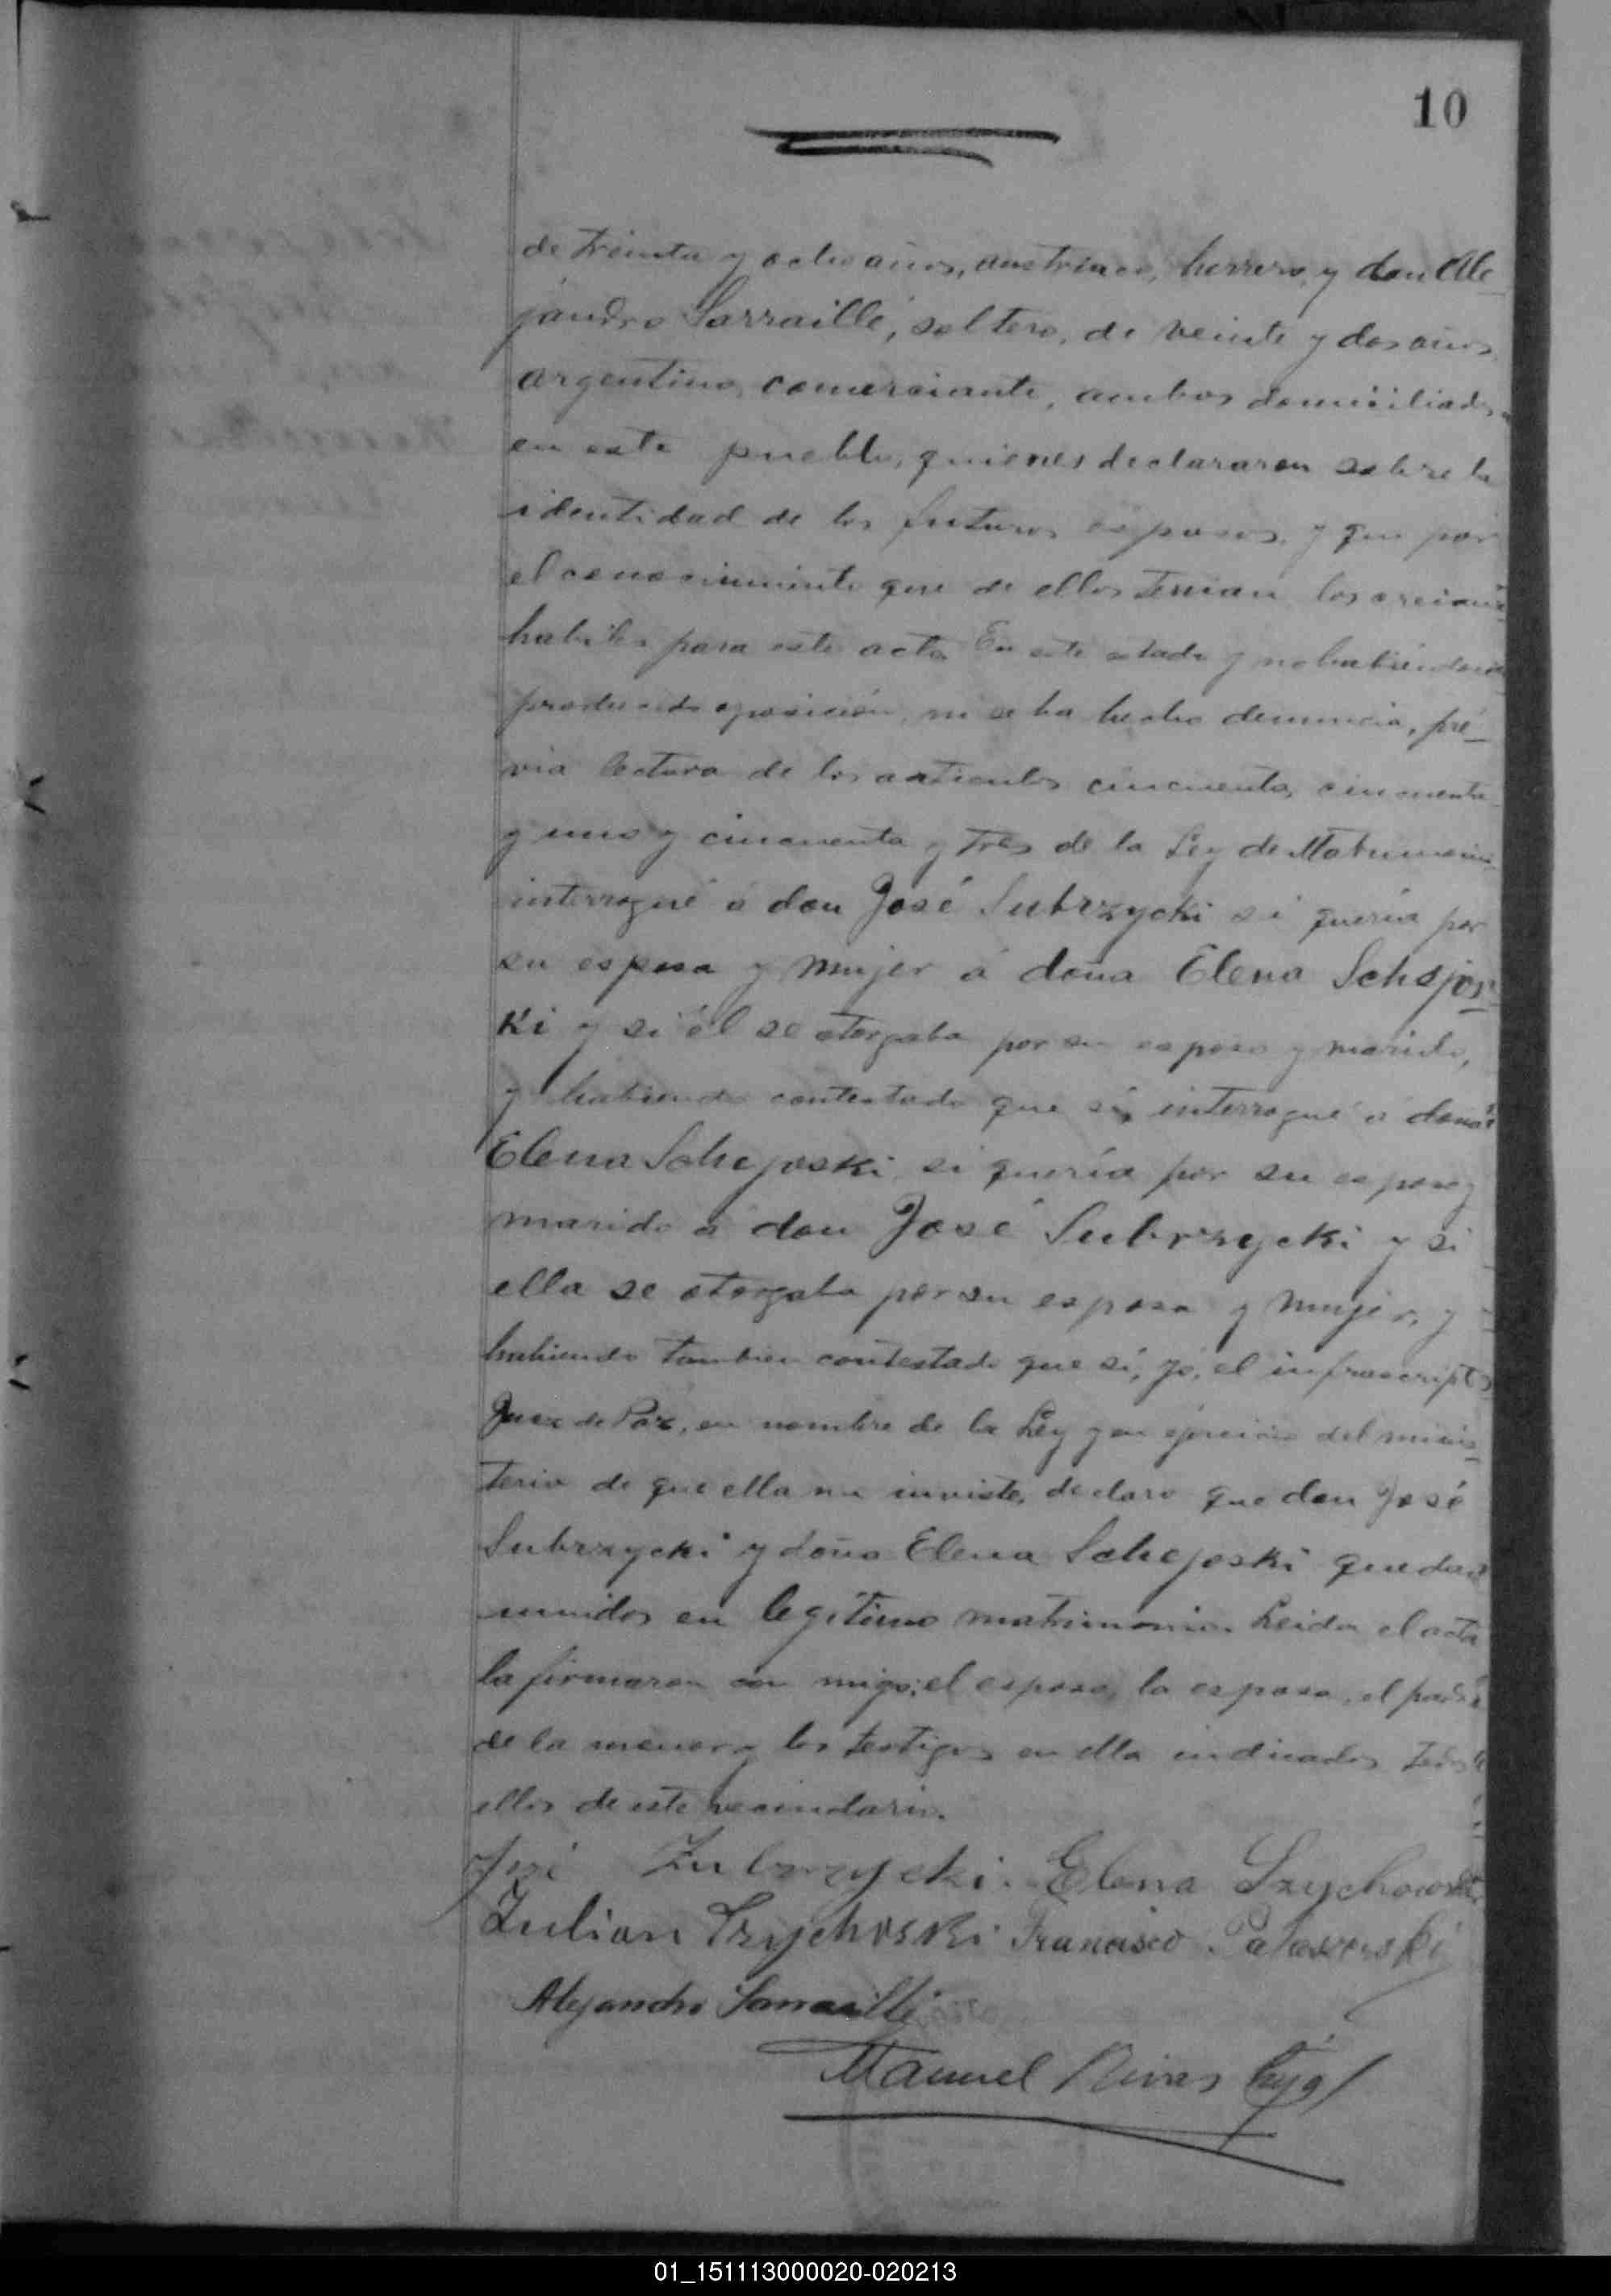 10
de treinta y ocho años, austriaco, herrero, y don Ale-
jandro Sarraillé, soltero, de veinte y dos años
argentino, comerciante, ambos domiciliados
en este pueblo, quienes declararon sobre la
identidad de los futuros esposos, y que por
el conocimiento que de ellos tenian los creian
habiles para este acto. En este estado y no habiendose
producido oposición, ni se ha hecho denuncia, pré-
via lectura de los articulos cincuenta, cincuenta
y uno y cincuenta y tres de la Ley de Matrimonio
interrogué á don José Subrzycki si quería por
su esposa y mujer á doña Elena Schejos-
ki y si él se otorgaba por su esposo y marido,
y habiendo contestado que sí, interrogué á doña
Elena Schejoski si quería por su esposo y
marido á don José Subrzycki y si
ella se otorgaba por su esposa y mujer, y
habiendo tambien contestado que sí, yo, el infrascripto
Juez de Paz, en nombre de la Ley y en ejercicio del minis-
terio de que ella me inviste, declaro que don José
Subrzycki y doña Elena Schejoski quedan
unidos en legítimo matrimonio. Leida el acta
la firmaron con migo; el esposo, la esposa, el padre
de la menor y los testigos en ella indicados todos
ellos de este vecindario.
José Zubrzycki. Elena Szychowski
Julian Szychoski Francisco
Alejandro Sarraillé
Manuel Rivas hijo
01_151113000020-020213